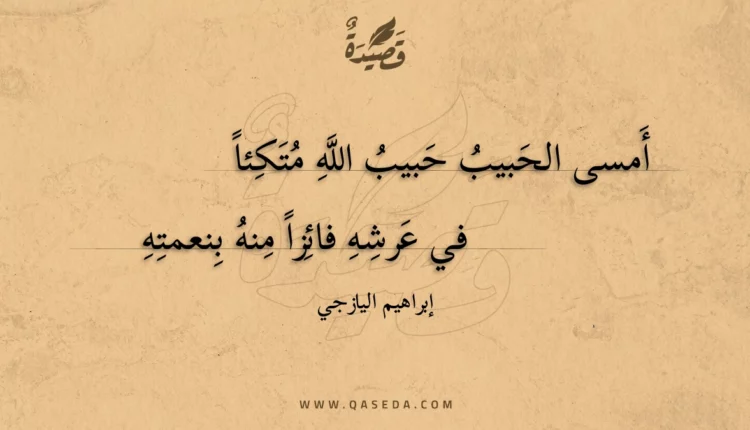 قَصِيدَةٌ
أَمسى الحَبيبُ حَبيبُ اللَّهِ مُتَكِئاً
في عَرشِهِ فائِزاً مِنهُ بِنعمتِهِ
إبراهيم اليازجي
WWW.QASEDA.COM